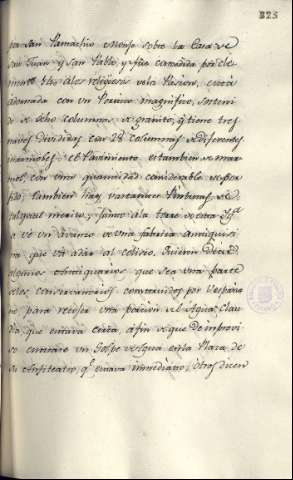 225
por San Pamachio Monge sobre la Casa de
San Juan y San Pablo, y fue concedida por Cle-
mente à los religiosos de la Pasion, está
adornada con un Portico magnifico, sosteni-
do de ocho columnas de granito, y tiene tres
naves divididas con 28 columnas de diferentes
marmoles. el Pavimento es tambien de mar-
mol, con una quantidad considerable de Porfi-
do, tambien hay bastantes Pinturas de
algun merito, y junto à la Torre de esta Igª
se vè un abanzo de una fabrica antiquisi-
ma que va à dar al coliseo. Quieren decir
algunos Antiquarios que sea una parte
de los conservatorios construidos por Vespasia-
no para recibir una porcion del Agua Clau-
dia que estava cerca, à fin de que de improvi-
so entrase un Golpe de Agua en la Plaza de
su Anfiteatro, qe estava immediato, otros dicen